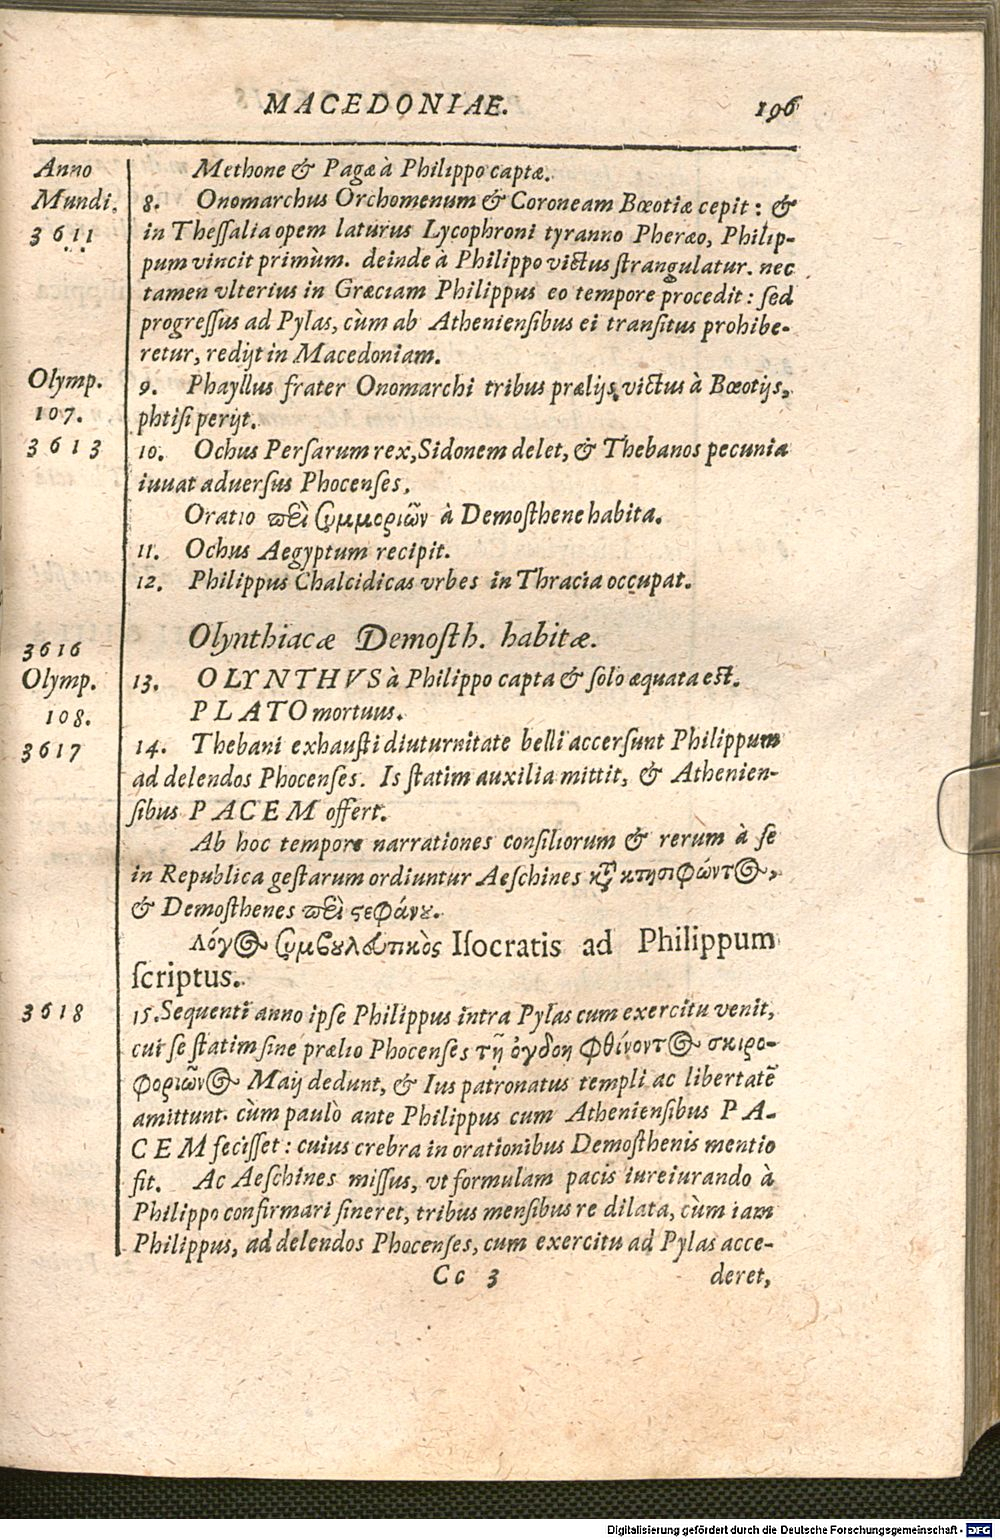 MACEDONIAE. 196
Anno
Mundi.
3611
Methone & Pagæ à Philippo captæ.
8. Onomarchus Orchomenum & Coroneam Bœotiæ cepit: &
in Theſſalia opem laturus Lycophroni tyranno Pheræo, Philip-
pum vincit primùm. deinde à Philippo victus ſtrangulatur. nec
tamen vlterius in Græciam Philippus eo tempore procedit: ſed
progreſſus ad Pylas, cùm ab Athenienſibus ei tranſitus prohibe-
retur, redijt in Macedoniam.
Olymp.
107.
9. Phayllus frater Onomarchi tribus prælijs victus à Bœotijs,
phtiſi perijt.
3613
10. Ochus Perſarum rex, Sidonem delet, & Thebanos pecunia
iuuat aduerſus Phocenſes.
Oratio περὶ συμμοριῶν à Demoſthene habita.
11. Ochus Aegyptum recipit.
12. Philippus Chalcidicas vrbes in Thracia occupat.
3616
Olynthiacæ Demoſth. habitæ.
Olymp.
108.
13. OLYNTHVS à Philippo capta & ſolo æquata eſt.
PLATO mortuus.
3617
14. Thebani exhauſti diuturnitate belli accerſunt Philippum
ad delendos Phocenſes. Is ſtatim auxilia mittit, & Athenien-
ſibus PACEM offert.
Ab hoc tempore narrationes conſiliorum & rerum à ſe
in Republica geſtarum ordiuntur Aeſchines κτ̃ κτησιφώντος,
& Demoſthenes περὶ ϛεφάνου.
Λόγος συμβουλευτικὸς Iſocratis ad Philippum
ſcriptus.
3618
15. Sequenti anno ipſe Philippus intra Pylas cum exercitu venit,
cui ſe ſtatim ſine prælio Phocenſes τῇ ὀγδοη φθίνοντος σκιρο-
φοριῶνος Maij dedunt, & Ius patronatus templi ac libertatē
amittunt. cùm paulò ante Philippus cum Athenienſibus PA-
CEM feciſſet: cuius crebra in orationibus Demoſthenis mentio
fit. Ac Aeſchines miſſus, vt formulam pacis iureiurando à
Philippo confirmari ſineret, tribus menſibus re dilata, cùm iam
Philippus, ad delendos Phocenſes, cum exercitu ad Pylas acce-
Cc 3 deret,
Digitalisierung gefördert durch die Deutsche Forschungsgemeinschaft - DFG